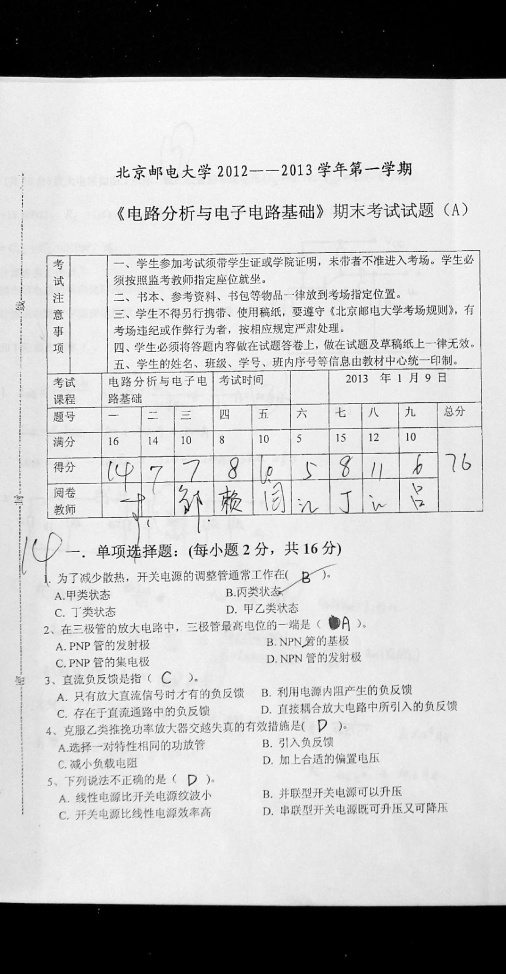 北京邮电大学2012——2013学年第一学期
《电路分析与电子电路基础》期末考试试题（A）
考试注意事项
一、学生参加考试须带学生证或学院证明，未带者不准进入考场。学生必
须按照监考教师指定座位就坐。
二、书本、参考资料、书包等物品一律放到考场指定位置。
三、学生不得另行携带、使用稿纸，要遵守《北京邮电大学考场规则》，有
考场违纪或作弊行为者，按相应规定严肃处理。
四、学生必须将答题内容做在试题答卷上，做在试题及草稿纸上一律无效。
五、学生的姓名、班级、学号、班内序号等信息由教材中心统一印制。
考试课程 电路分析与电子电路基础 考试时间 2013 年 1 月 9 日
题号 一 二 三 四 五 六 七 八 九 总分
满分 16 14 10 8 10 5 15 12 10
得分 14 7 7 8 10 5 8 11 6 76
阅卷教师 邹 赖 周 江 丁 江 吕
14
一．单项选择题：(每小题 2 分，共 16 分)
1. 为了减少散热，开关电源的调整管通常工作在( B )。
A.甲类状态 B.丙类状态
C. 丁类状态 D. 甲乙类状态
2、在三极管的放大电路中，三极管最高电位的一端是（ A ）。
A. PNP 管的发射极 B. NPN 管的基极
C. PNP 管的集电极 D. NPN 管的发射极
3、直流负反馈是指（ C ）。
A. 只有放大直流信号时才有的负反馈 B. 利用电源内阻产生的负反馈
C. 存在于直流通路中的负反馈 D. 直接耦合放大电路中所引入的负反馈
4、克服乙类推挽功率放大器交越失真的有效措施是( D )。
A.选择一对特性相同的功放管 B. 引入负反馈
C. 减小负载电阻 D. 加上合适的偏置电压
5、下列说法不正确的是（ D ）。
A. 线性电源比开关电源纹波小 B. 并联型开关电源可以升压
C. 开关电源比线性电源效率高 D. 串联型开关电源既可升压又可降压